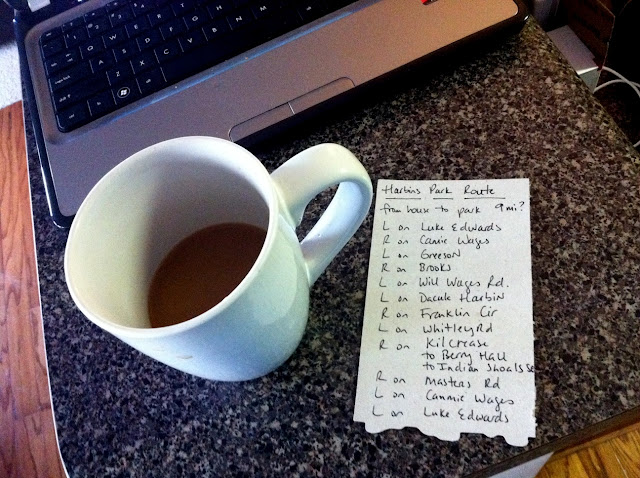 Harbins Park Route
from house to park 9 mi?
L on Luke Edwards
R on Cannie Wages
L on Greeson
R on Brooks
L on Will Wages Rd.
L on Dacula Harbin
R on Franklin Cir
L on Whitley Rd
R on Kilcrease
to Berry Hall
to Indian Shoals
R on Masters Rd
L on Cammie Wages
L on Luke Edwards